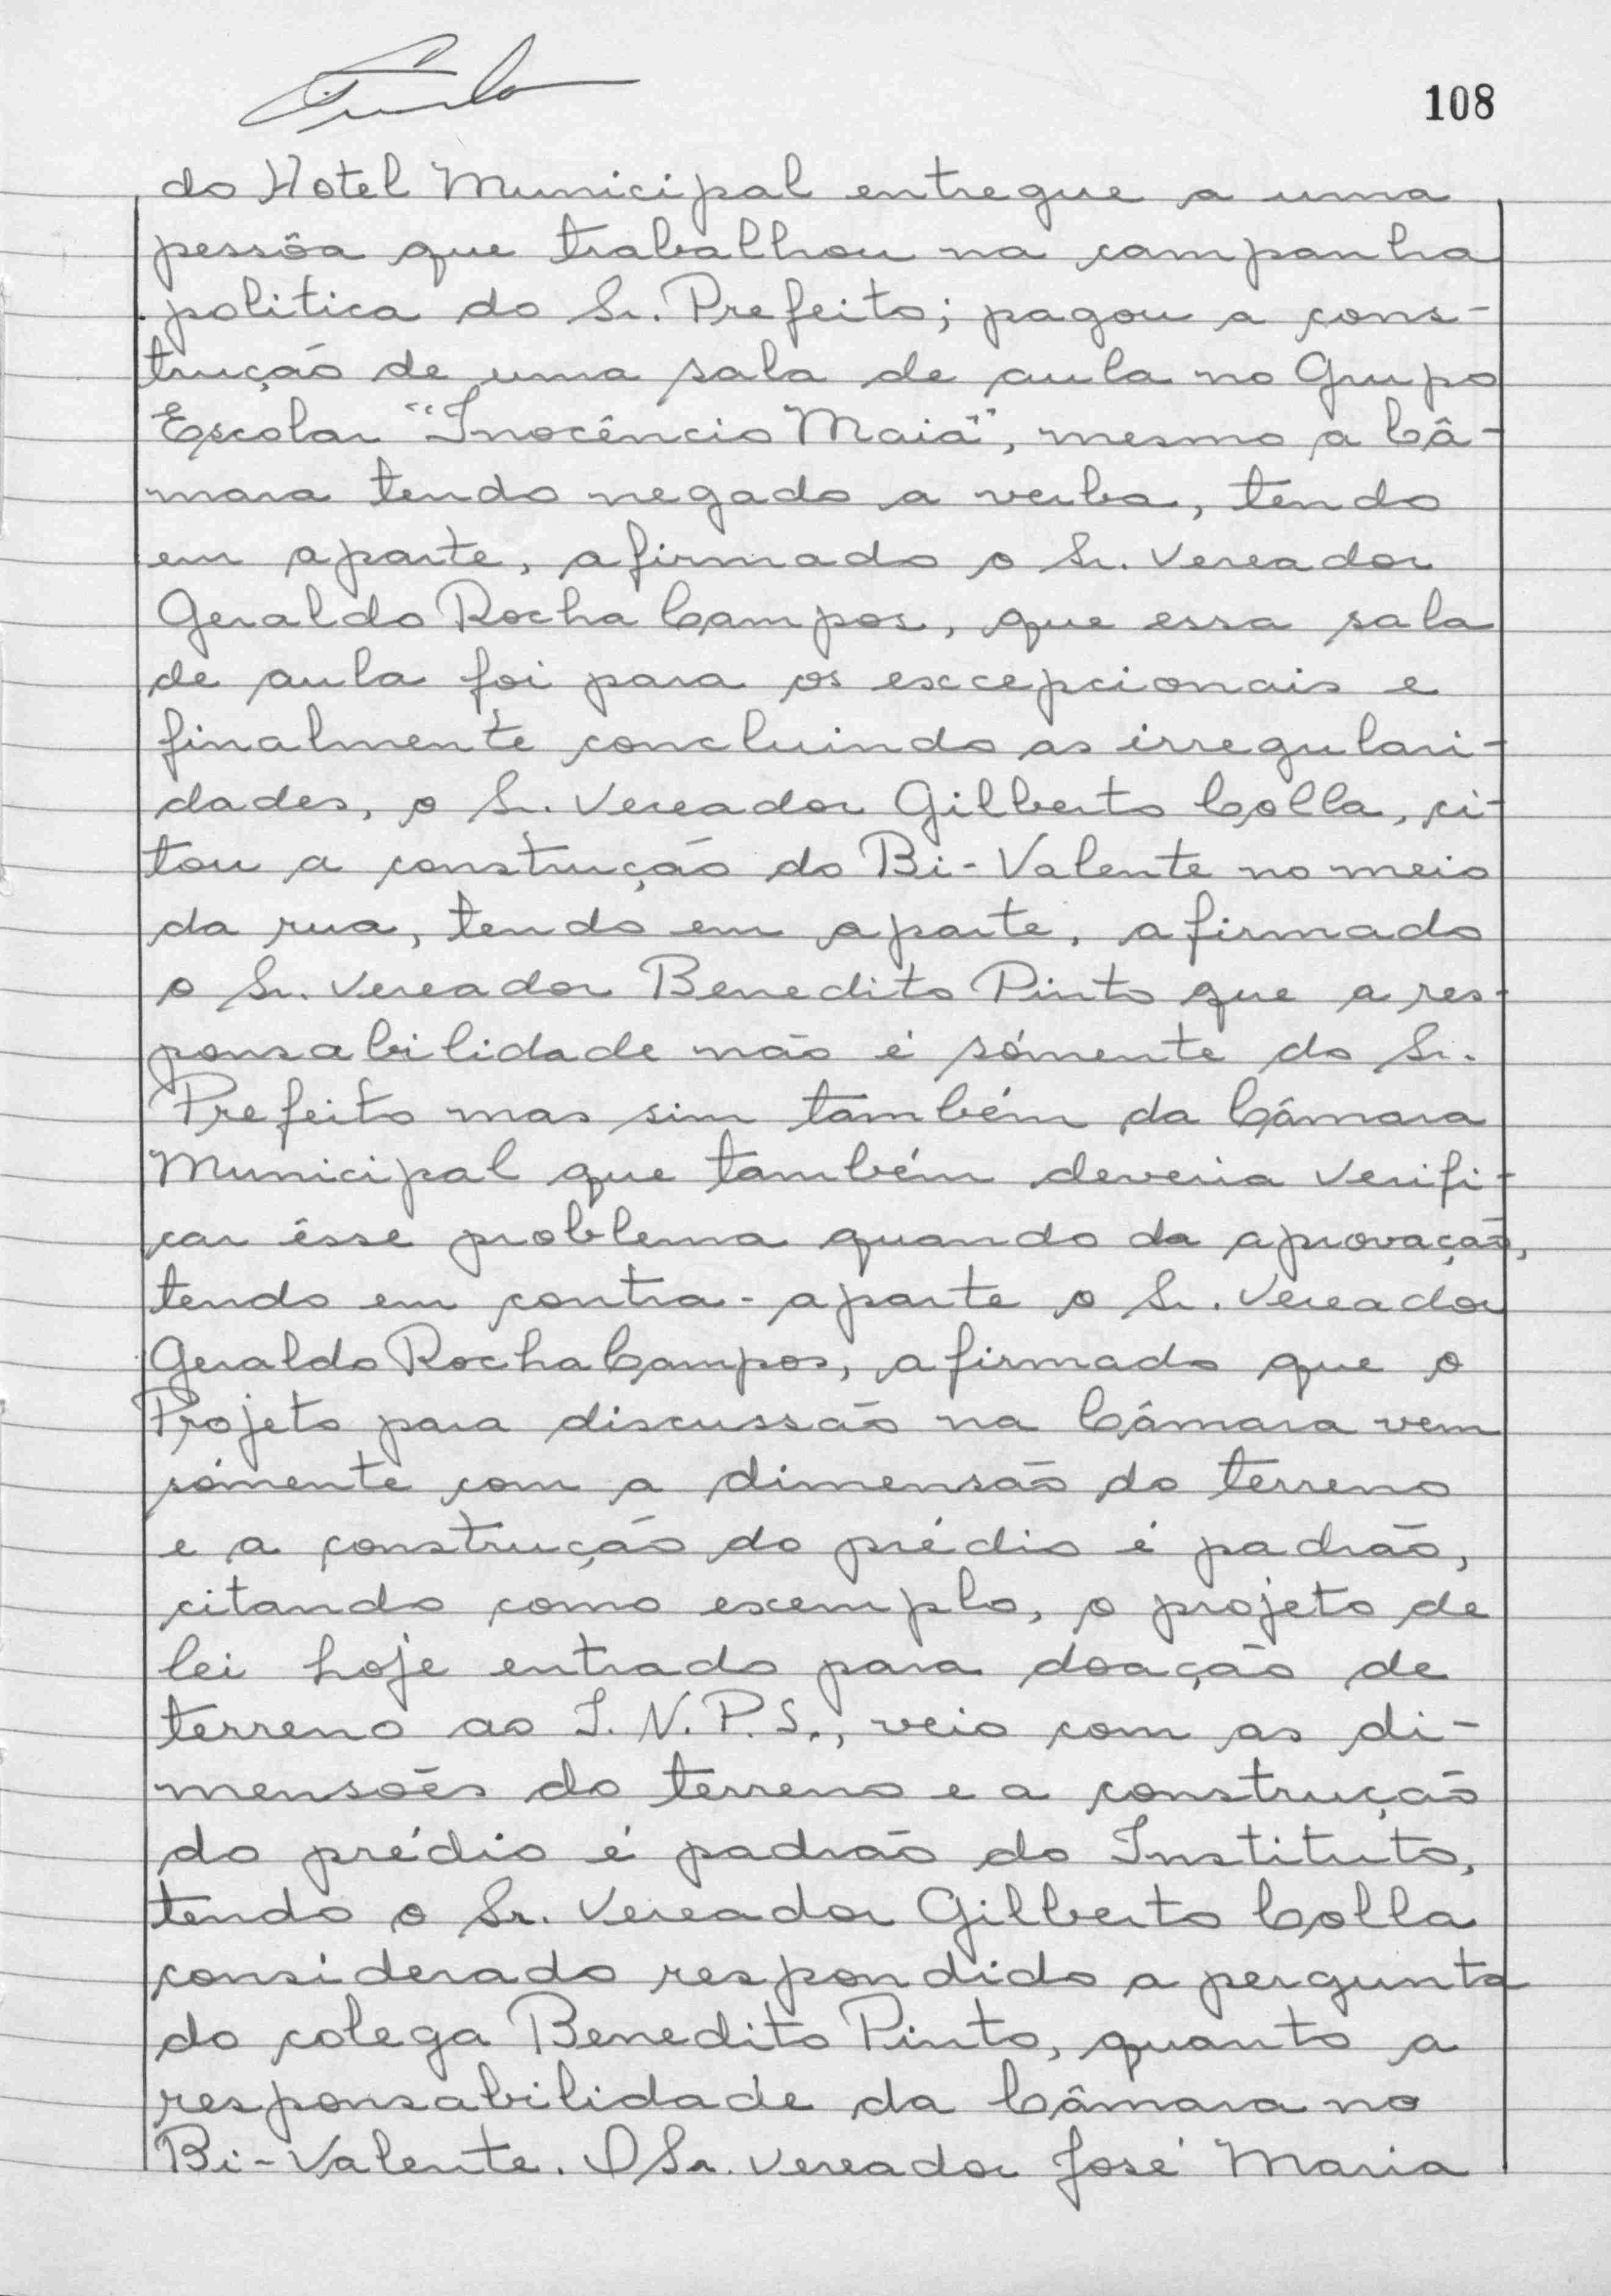 108
do Hotel Municipal entregue a uma
pessôa que trabalhou na campanha
politica do Sr. Prefeito; pagou a cons-
trução de uma sala de aula no Grupo
Escolar "Inocêncio Maia", mesmo a Câ-
mara tendo negado a verba, tendo
em aparte, afirmado o Sr. Vereador
Geraldo Rocha Campos, que essa sala
de aula foi para os excepcionais e
finalmente concluindo as irregulari-
dades, o Sr. Vereador Gilberto Colla, ci-
tou a construção do Bi-Valente no meio
da rua, tendo em aparte, afirmado
o Sr. Vereador Benedito Pinto que a res-
ponsabilidade não é sómente do Sr.
Prefeito mas sim também da Câmara
Municipal que também deveria verifi-
car êsse problema quando da aprovação,
tendo em contra-aparte o Sr. Vereador
Geraldo Rocha Campos, afirmado que o
Projeto para discussão na Câmara vem
sómente com a dimensão do terreno
e a construção do prédio é padrão,
citando como exemplo, o projeto de
lei hoje entrado para doação de
terreno ao I.N.P.S., veio com as di-
mensões do terreno e a construção
do prédio é padrão do Instituto,
tendo o Sr. Vereador Gilberto Colla
considerado respondido a pergunta
do colega Benedito Pinto, quanto a
responsabilidade da Câmara no
Bi-Valente. O Sr. Vereador José Maria